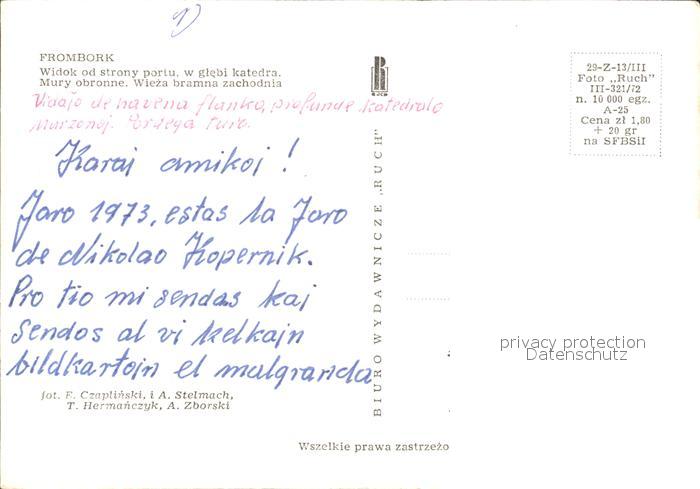 1)
FROMBORK
Widok od strony portu, w głębi katedra.
Mury obronne. Wieża bramna zachodnia
Vidaĵo de havena flanko, profunde katedralo
Murzonoj. Pordega turo.
Karaj amikoj !
Jaro 1973, estas la Jaro
de Nikolao Kopernik.
Pro tio mi sendas kaj
sendos al vi kelkajn
bildkartojn el malgranda
fot. F. Czapliński, i A. Stelmach,
T. Hermańczyk, A. Zborski
BIURO WYDAWNICZE „RUCH"
Wszelkie prawa zastrzeżo
29-Z-13/III
Foto „Ruch"
III-321/72
n. 10 000 egz.
A-25
Cena zł 1,80
+ 20 gr
na SFBSiI
privacy protection
Datenschutz